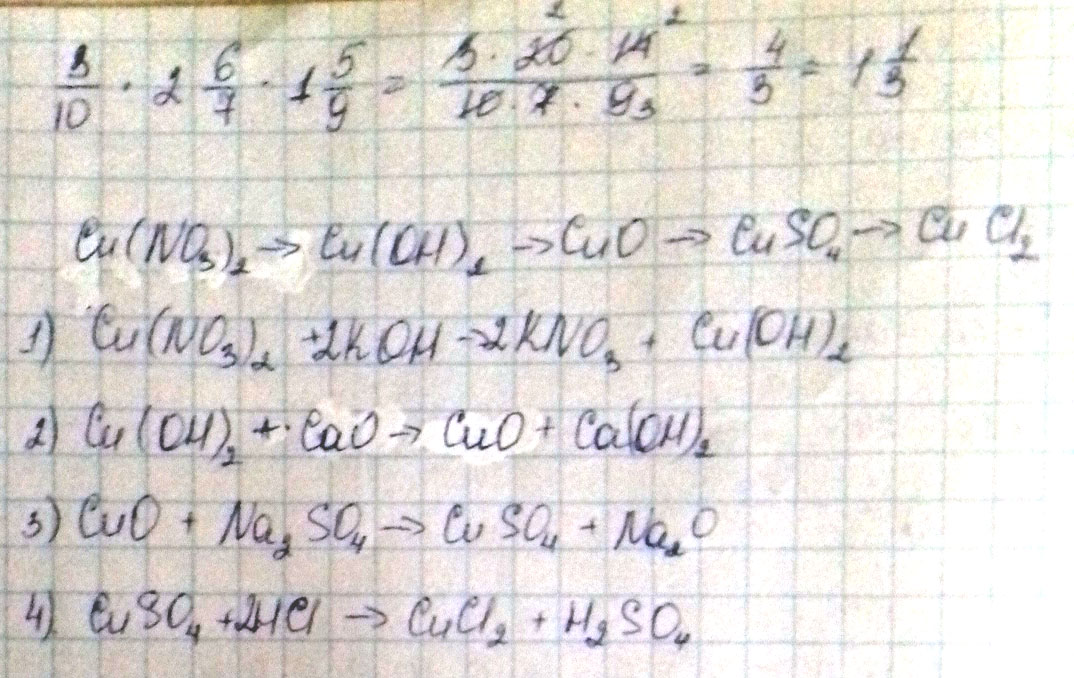 3/10 · 2 6/7 · 1 5/9 = 3 · 20 2 · 14 2 / 10 · 7 · 9 3 = 4/3 = 1 1/3
Cu(NO₃)₂ → Cu(OH)₂ → CuO → CuSO₄ → CuCl₂
1) Cu(NO₃)₂ + 2KOH → 2KNO₃ + Cu(OH)₂
2) Cu(OH)₂ + CaO → CuO + Ca(OH)₂
3) CuO + Na₂SO₄ → CuSO₄ + Na₂O
4) CuSO₄ + 2HCl → CuCl₂ + H₂SO₄